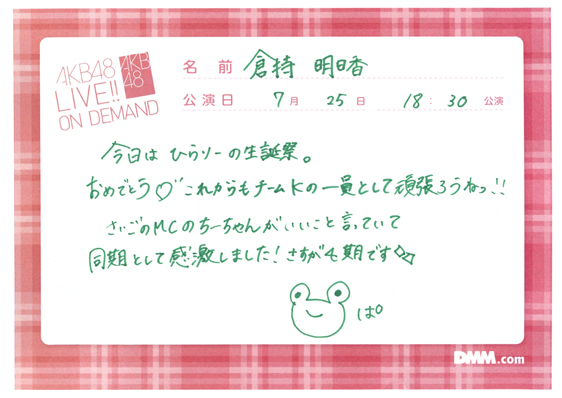 AKB48
LIVE!!
ON DEMAND
AKB
48
名 前 倉持 明日香
公演日 7月 25日 18:30 公演
今日は ひらりーの生誕祭。
おめでとう♡" これからもチームKの一員として頑張ろうねっ!!
さいごのMCのちーちゃんがいいこと言っていて
同期として感激しました! さすが4期です
ぱ。
DMM.com